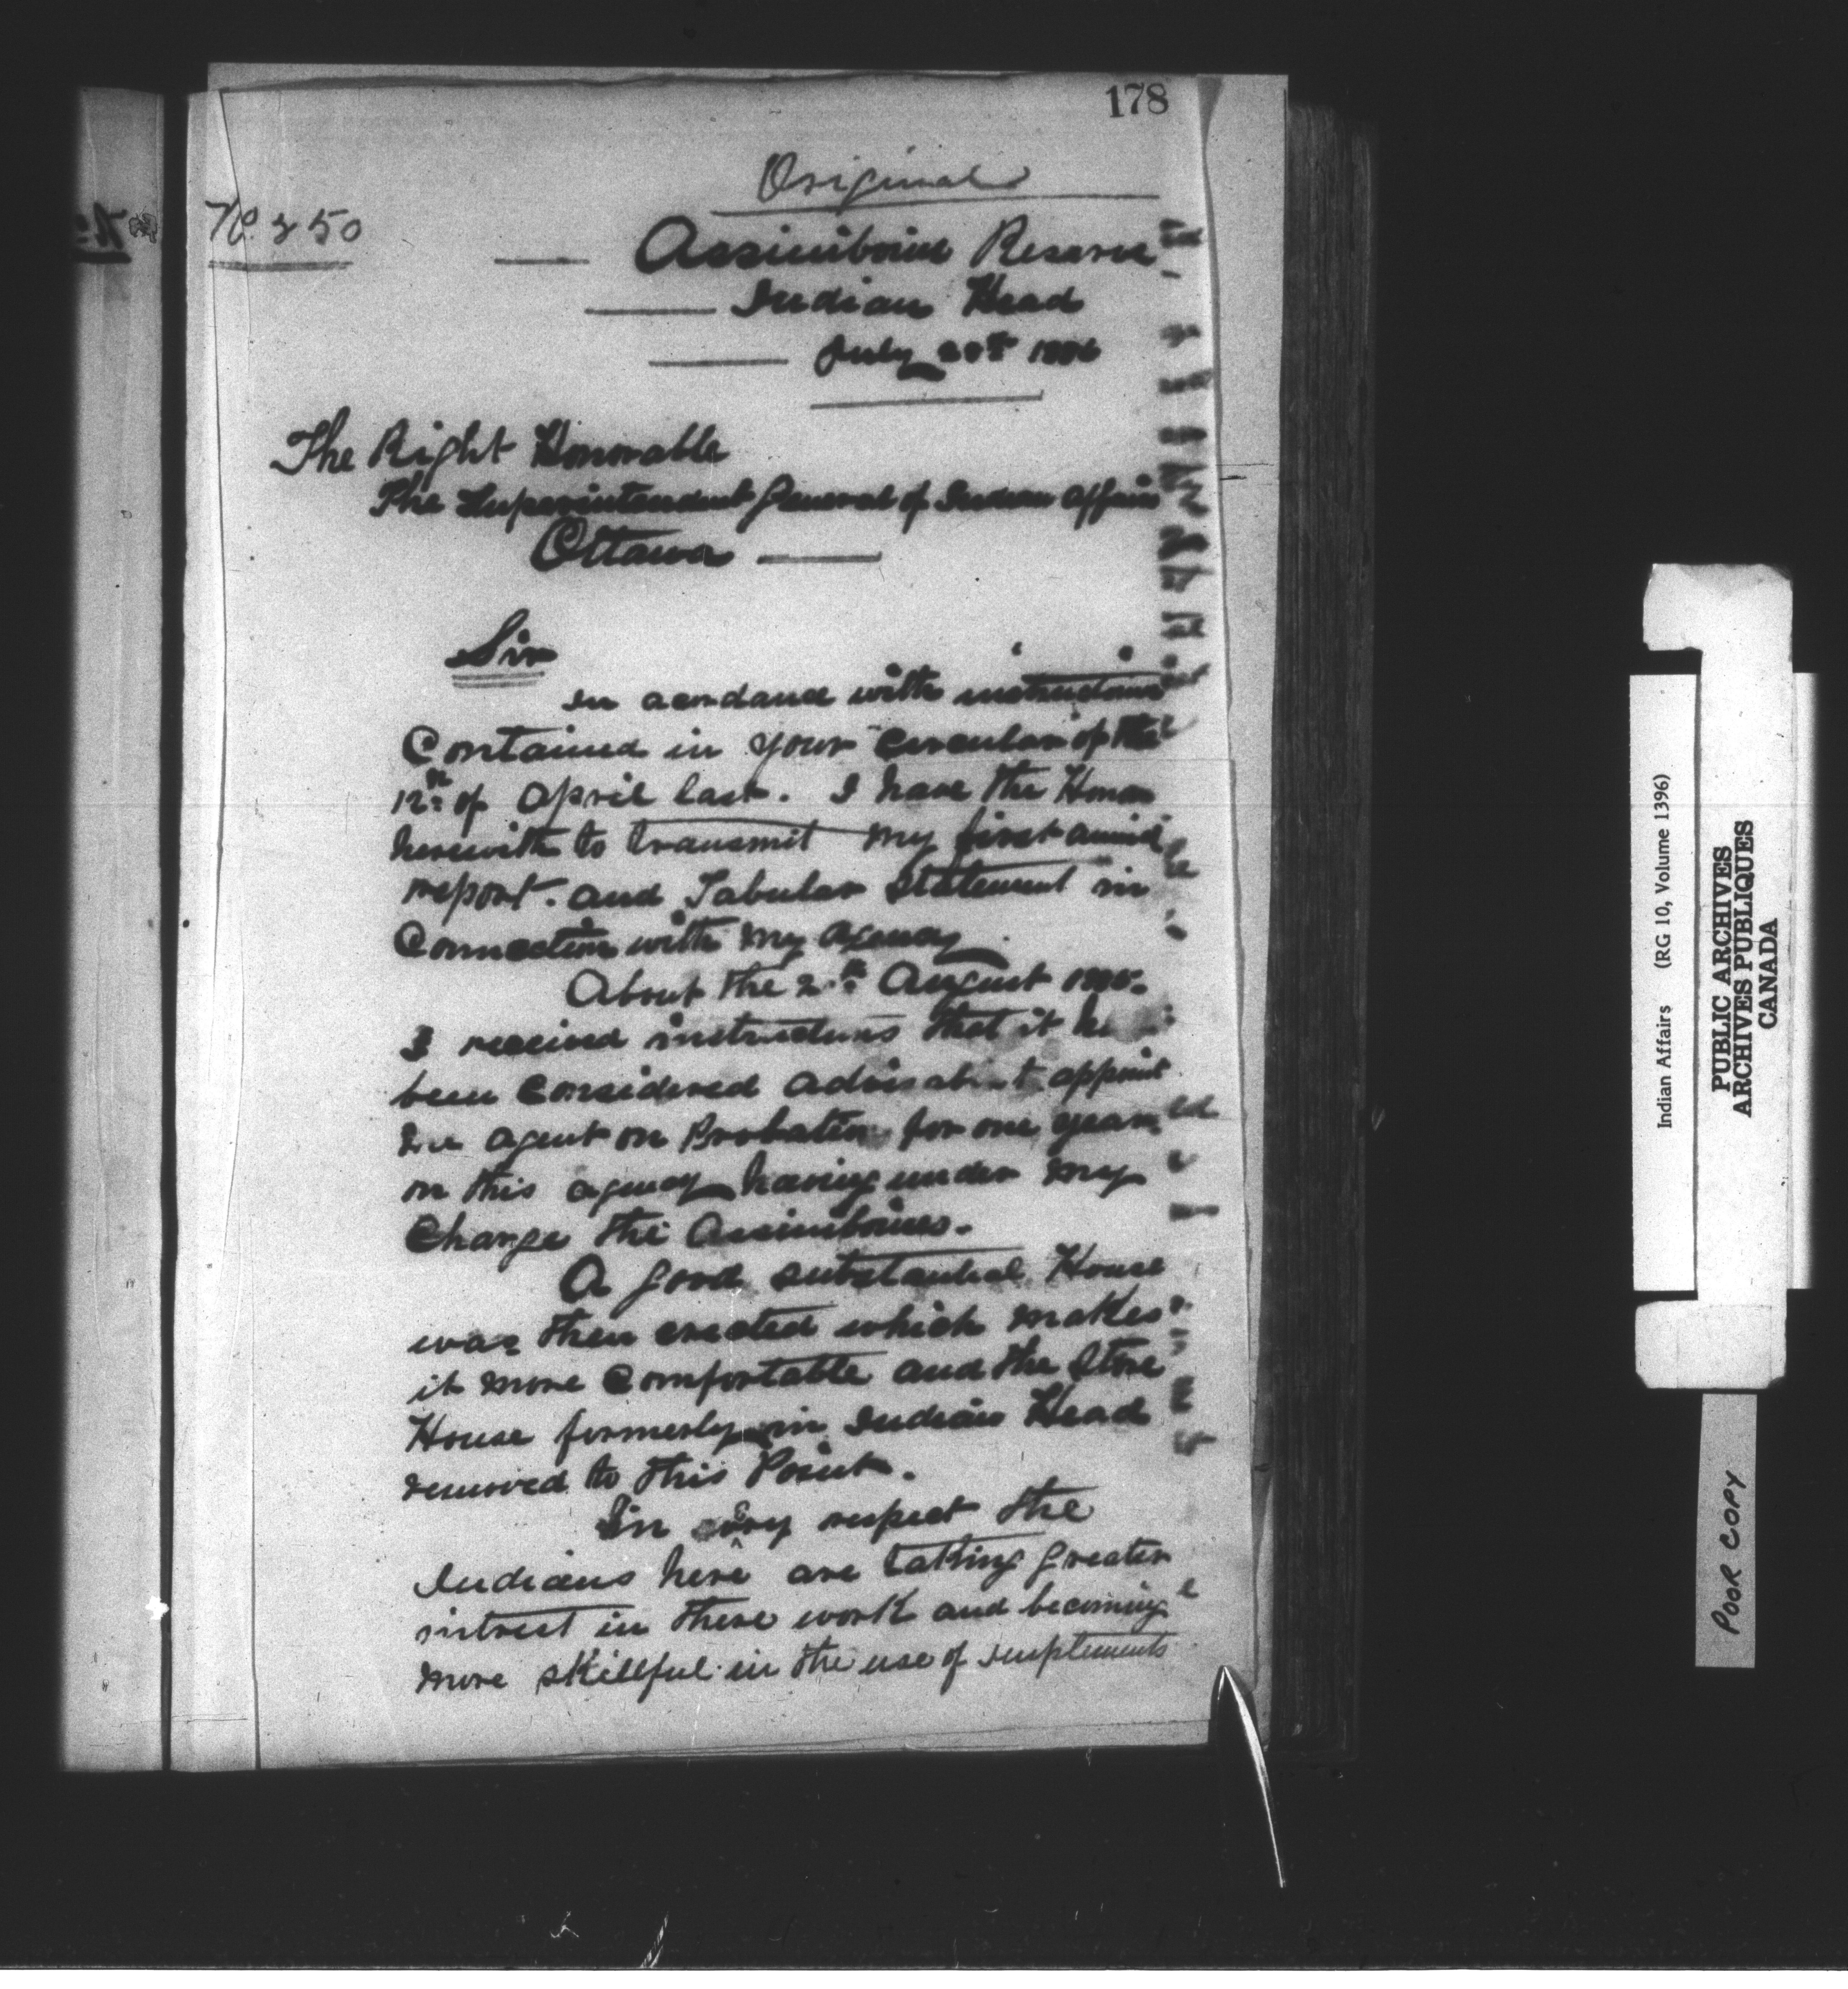 178
Original
No. 250
Assiniboine Reserve
Indian Head
July 1886
The Right Honorable
The Superintendent General of Indian Affairs
Ottawa
Sir
In acordance with instructions
Contained in your Circular of the
12th of April last. I have the Honor
herewith to transmit my first
report. and Tabular Statement in
Connection with my Agency.
About the 2 August 1885.
I received instructions that it
been considered advisable t appoint
me agent on Probation for one year
on this agency having under my
Charge the Assiniboines.
A good substantial House
was then erected which makes
it more Comfortable and the Store
House formerly in Indian Head
removed to this Point.
In evry respect the
Indians here are taking greater
intrest in there work and becoming
more skillful in the use of implements
Indian Affairs (RG 10, Volume 1396)
PUBLIC ARCHIVES
ARCHIVES PUBLIQUES
CANADA
POOR COPY